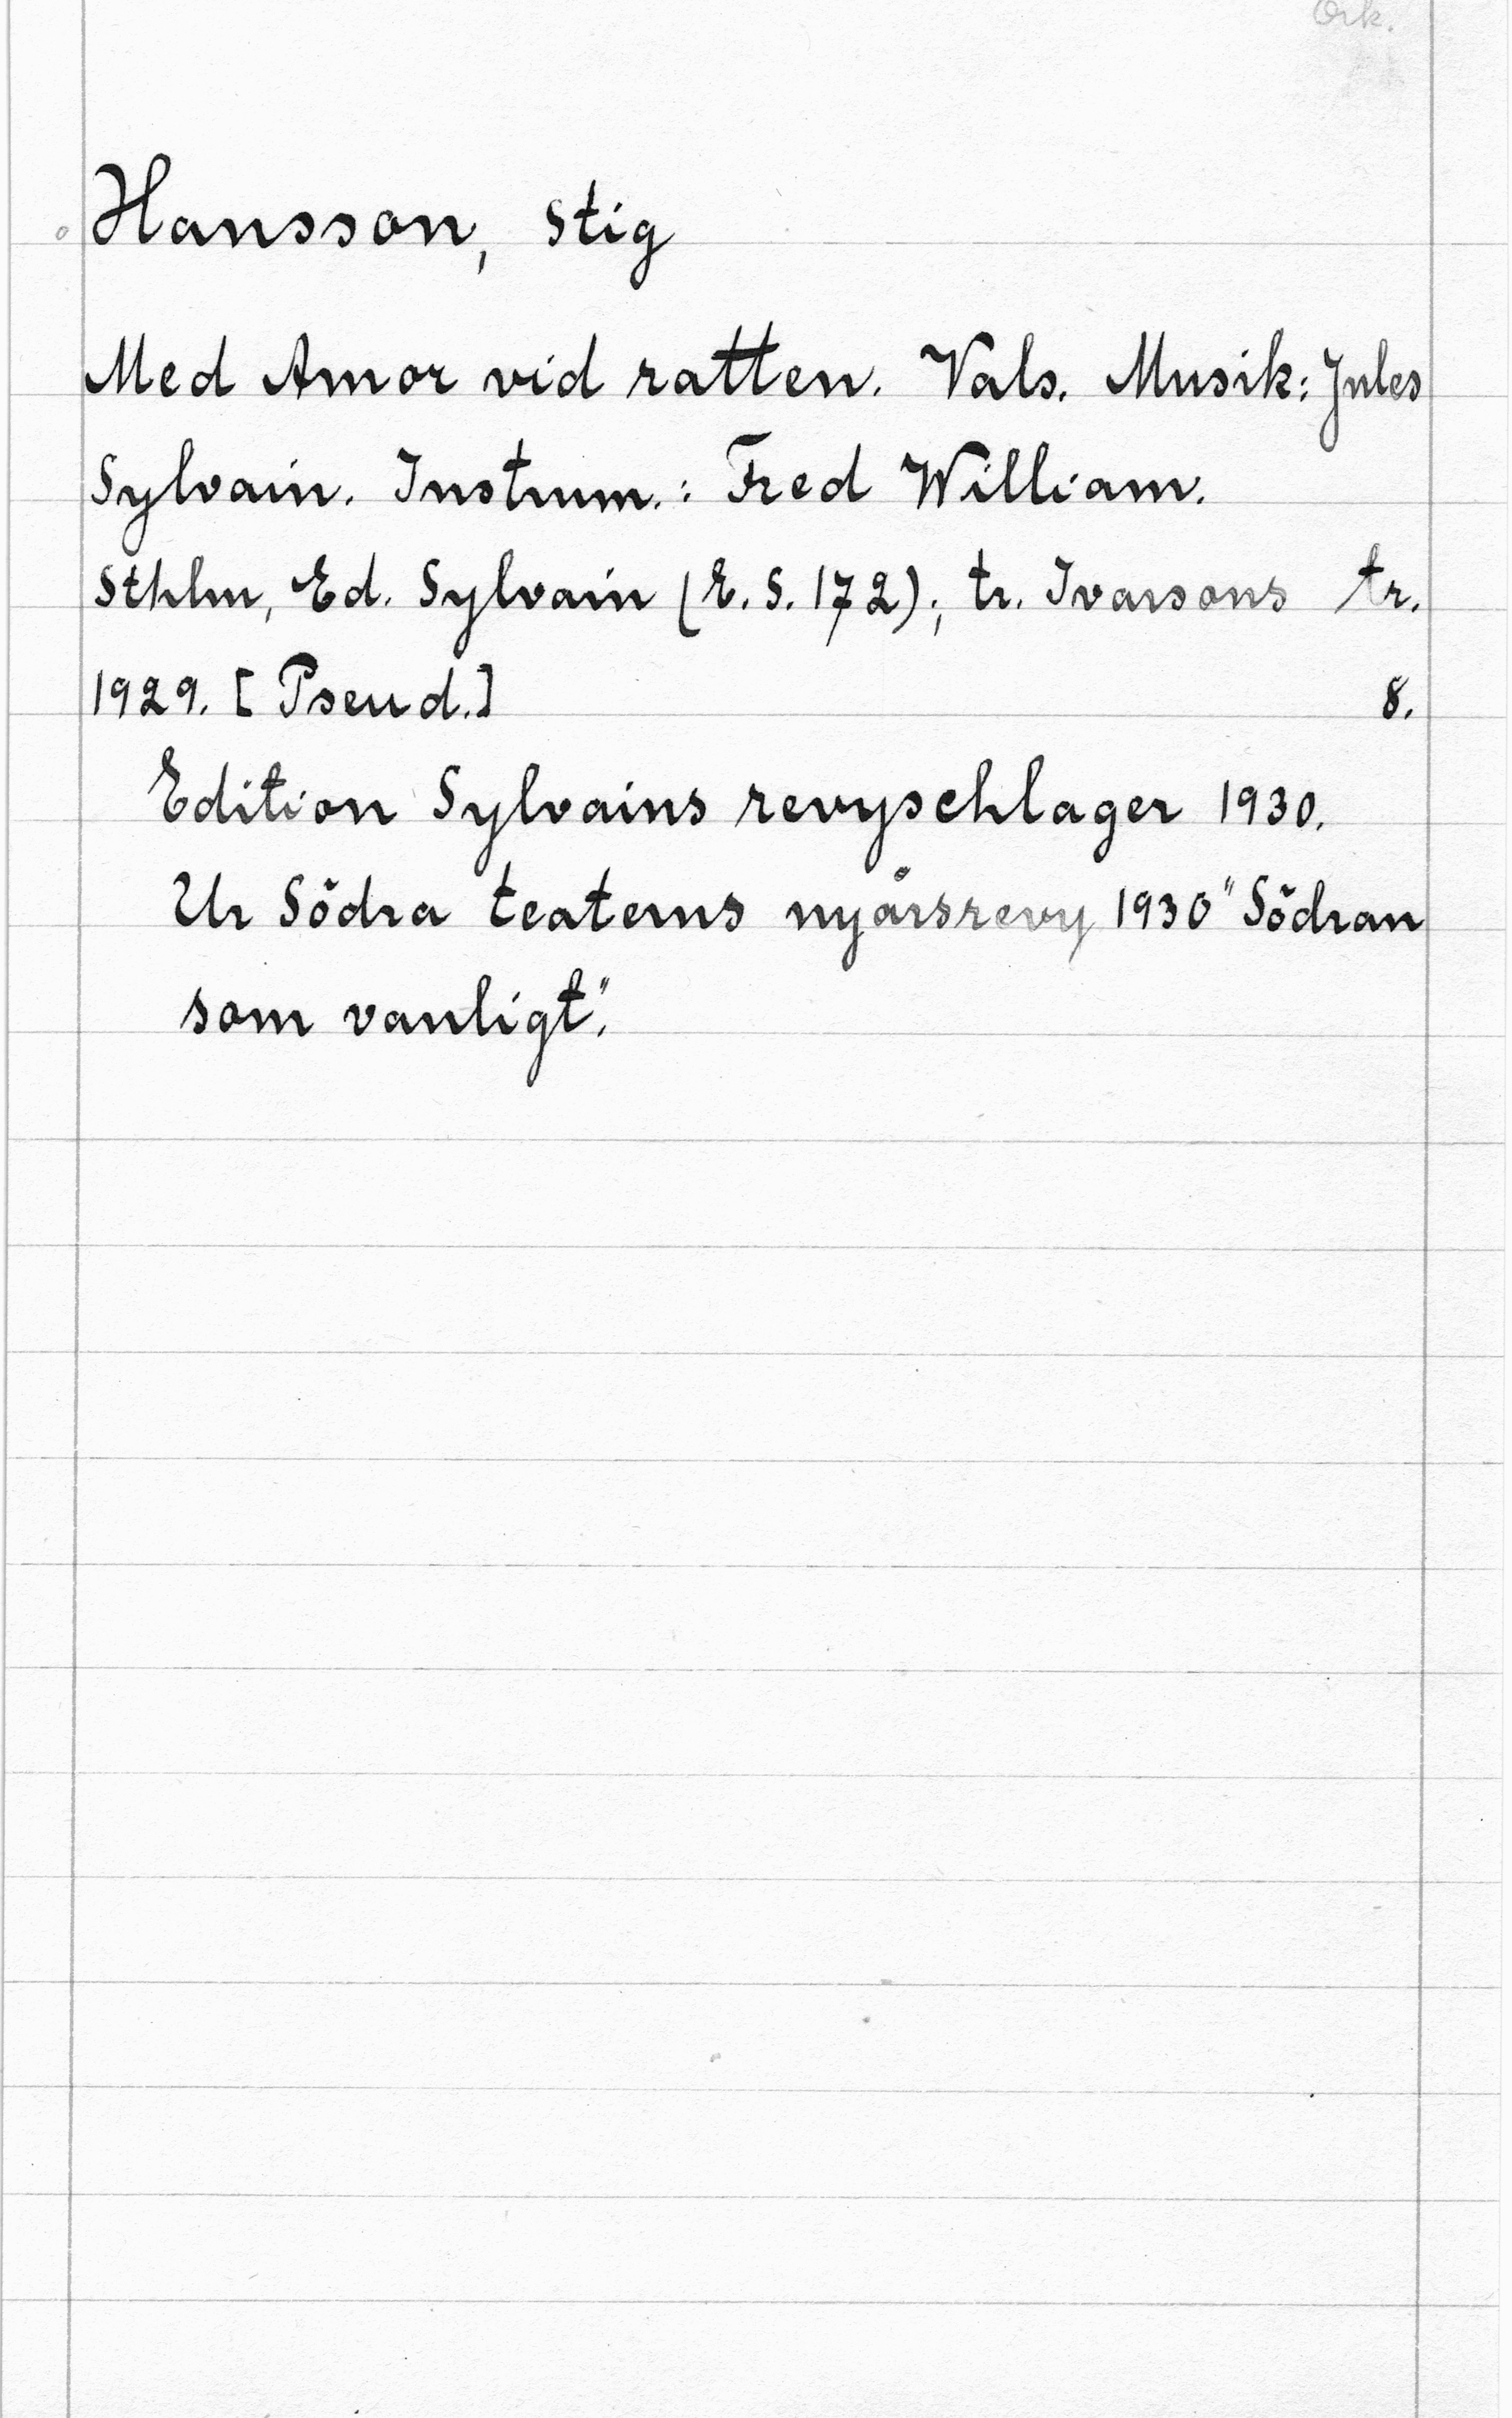 Ork.
Hansson, Stig
Med Amor vid ratten. Vals. Musik: Jules
Sylvain. Instrum.: Fred William.
Sthlm, Ed. Sylvain (E.S. 172); tr. Ivarsons tr.
1929. [Pseud.] 8.
Edition Sylvains revyschlager 1930.
Ur Södra teaterns nyårsrevy 1930 "Södran
som vanligt".